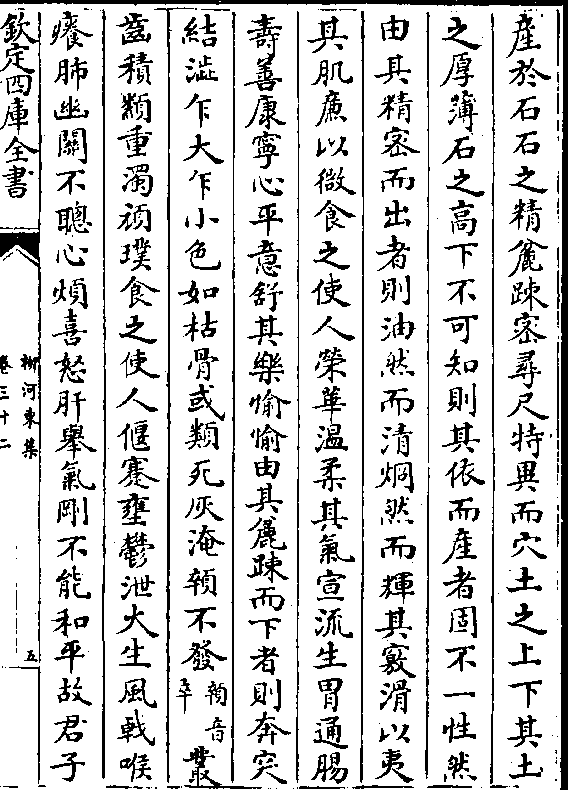 產於石石之精麄踈宻尋尺特異而穴土之上下其土
之厚薄石之高下不可知則其依而産者固不一性然
由其精宻而出者則油然而清炯然而輝其竅滑以夷
其肌廉以微食之使人榮華温柔其氣宣流生胃通腸
壽善康寧心平意舒其樂愉愉由其麄踈而下者則奔突
結澁乍大乍小色如枯骨或類死灰淹顇不發顇音卒叢
齒積纇重濁頑璞食之使人偃蹇壅鬱泄火生風戟喉
癢肺幽關不聰心煩喜怒肝舉氣剛不能和平故君子
欽定四庫全書
柳河東集
卷三十二
五